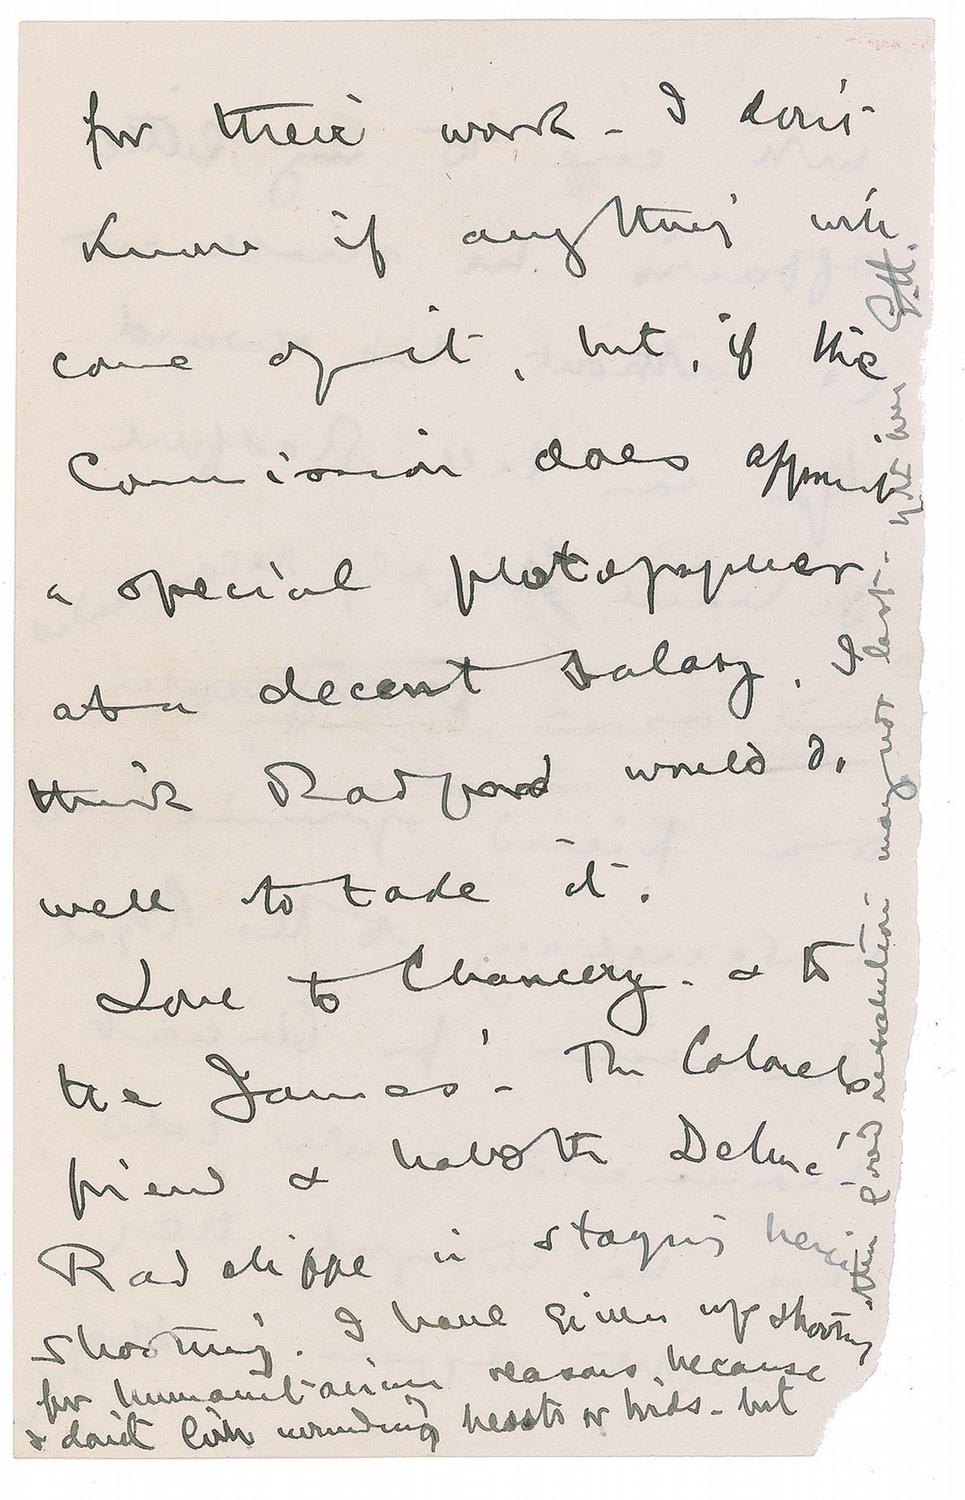 for their work - I don't
know if anything will
come of it, but, if the
Commission does appoint
a special photographer
at a decent salary, I
think Radford would do
well to take it.
Love to Chancery. & to
the James' - The Colonel's
friend &
Radcliffe is staying here
shooting. I have given up shooting
for humanitarian reasons, because
I don't like wounding beasts or birds - but
this good resolution may not last - Yrs ever